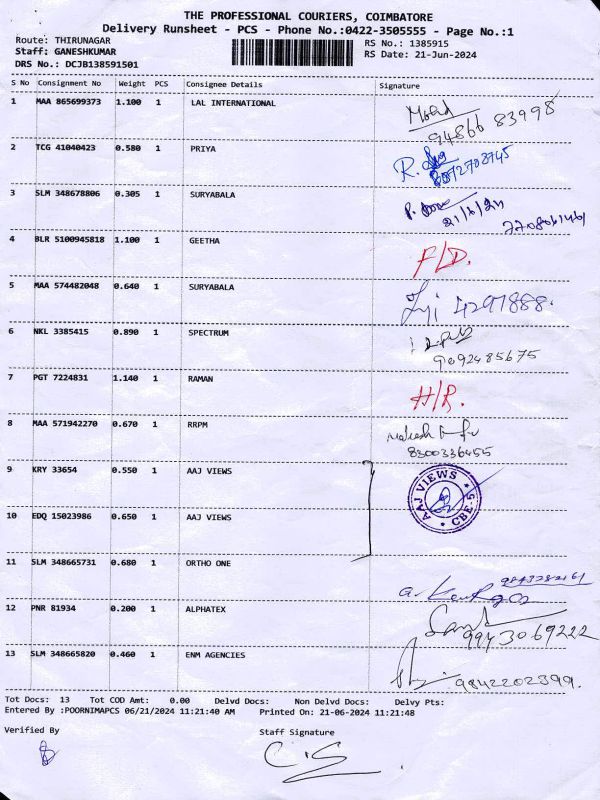 THE PROFESSIONAL COURIERS, COIMBATORE
Delivery Runsheet - PCS - Phone No.:0422-3505555 - Page No.:1
Route: THIRUNAGAR RS No.: 1385915
Staff: GANESHKUMAR RS Date: 21-Jun-2024
DRS No.: DCJB138591501
S No Consignment No Weight PCS Consignee Details Signature
1 MAA 865699373 1.100 1 LAL INTERNATIONAL
94866 83998
2 TCG 41040423 0.580 1 PRIYA
3 SLM 348678806 0.305 1 SURYABALA
21/6/24
4 BLR 5100945818 1.100 1 GEETHA
F/D.
5 MAA 574482048 0.640 1 SURYABALA
4297888.
6 NKL 3385415 0.890 1 SPECTRUM
9092485675
7 PGT 7224831 1.140 1 RAMAN
H/R.
8 MAA 571942270 0.670 1 RRPM
8300336455
9 KRY 33654 0.550 1 AAJ VIEWS
AAJ VIEWS CBE-5
10 EDQ 15023986 0.650 1 AAJ VIEWS
11 SLM 348665731 0.680 1 ORTHO ONE
12 PNR 81934 0.200 1 ALPHATEX
9943069222
13 SLM 348665820 0.460 1 ENM AGENCIES
9842202399.
Tot Docs: 13 Tot COD Amt: 0.00 Delvd Docs: Non Delvd Docs: Delvy Pts:
Entered By :POORNIMAPCS 06/21/2024 11:21:40 AM Printed On: 21-06-2024 11:21:48
Verified By Staff Signature